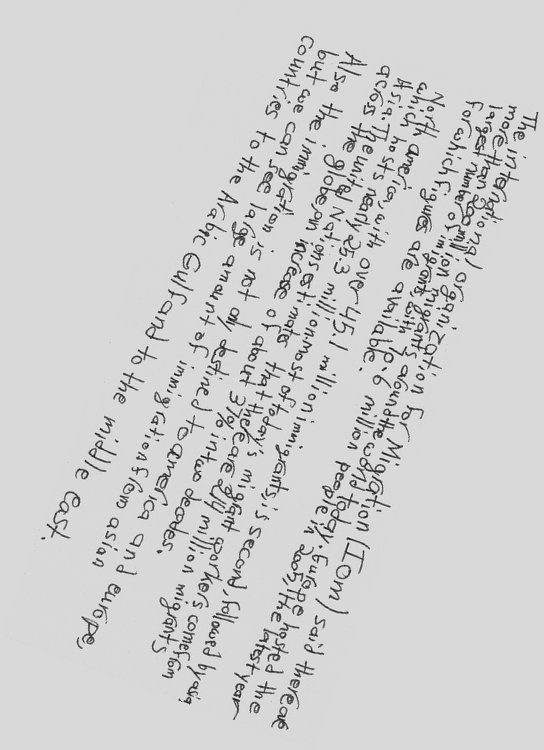 The international organization for Migration (IOM) said there are
more than 200 million migrants around the world today. Europe hosted the
largest number of immigrants, with 7.6 million people in 2005, the latest year
for which figures are available.
North america, with over 45.1 million immigrants, is second, followed by asia
which hosts nearly 25.3 million most of today's migrant workers come from
Asia. The united Nations estimates that there are 214 million migrants
across the globe, an increase of about 37% in two decades.
Also the immigration is not only destined to america and europe,
but we can see large amount of immigration from asian
countries to the Arabic Gulf and to the middle east.